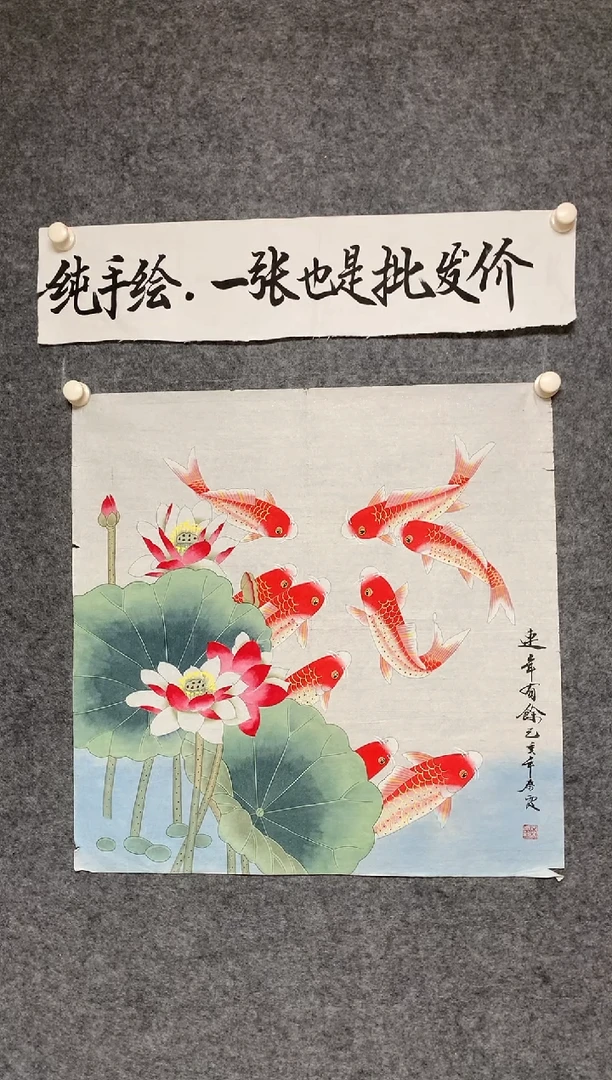 纯手绘.一张也是批发价
连年有餘己亥年春霞